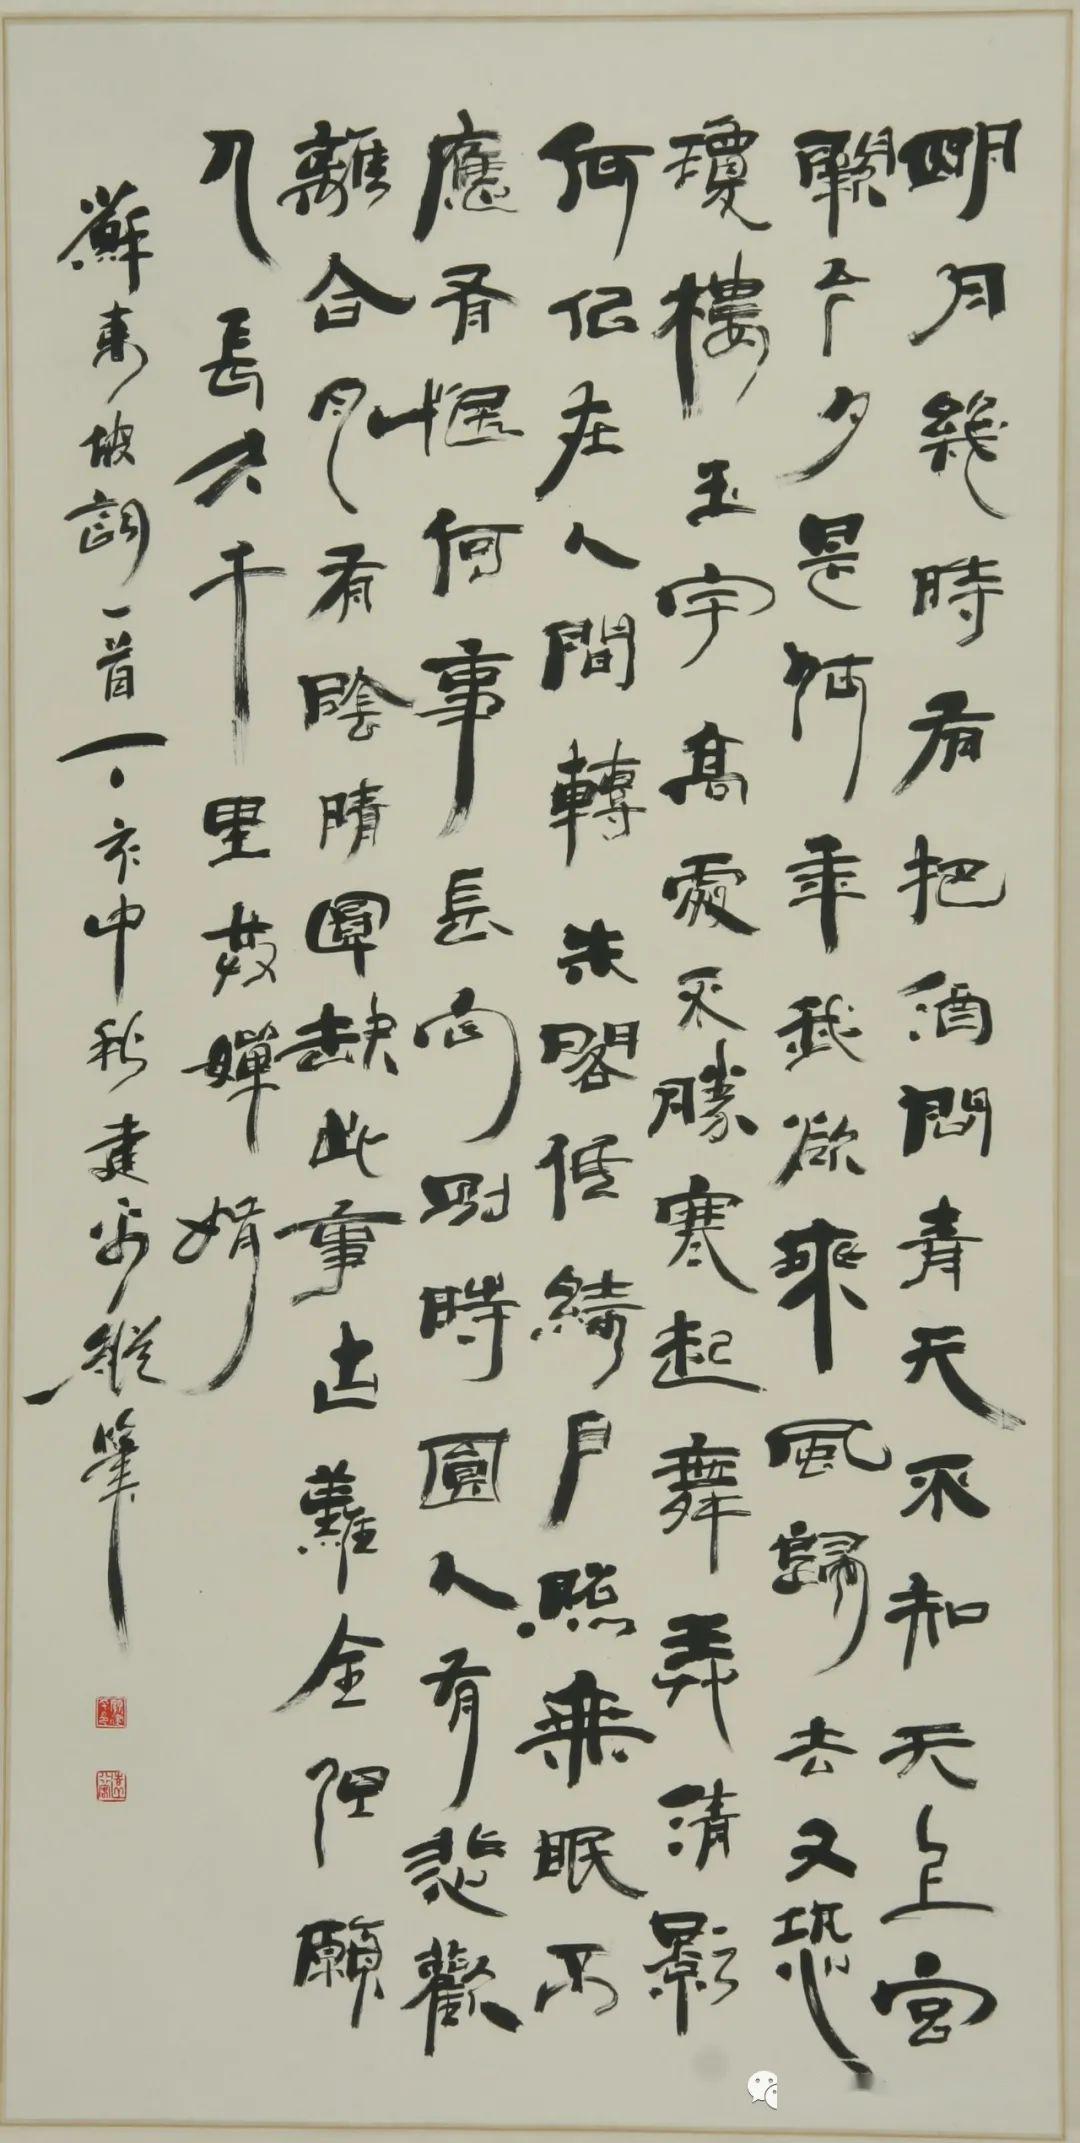 明月幾時有把酒問青天不知天上宮
闕今夕是何年我欲乘風歸去又恐
瓊樓玉宇高處不勝寒起舞弄清影
何似在人間轉朱閣低綺戶照無眠不
應有恨何事長向別時圓人有悲歡
離合月有陰晴圓缺此事古難全但願
人長久千里共嬋娟
蘇東坡詞一首丁亥中秋建縱筆